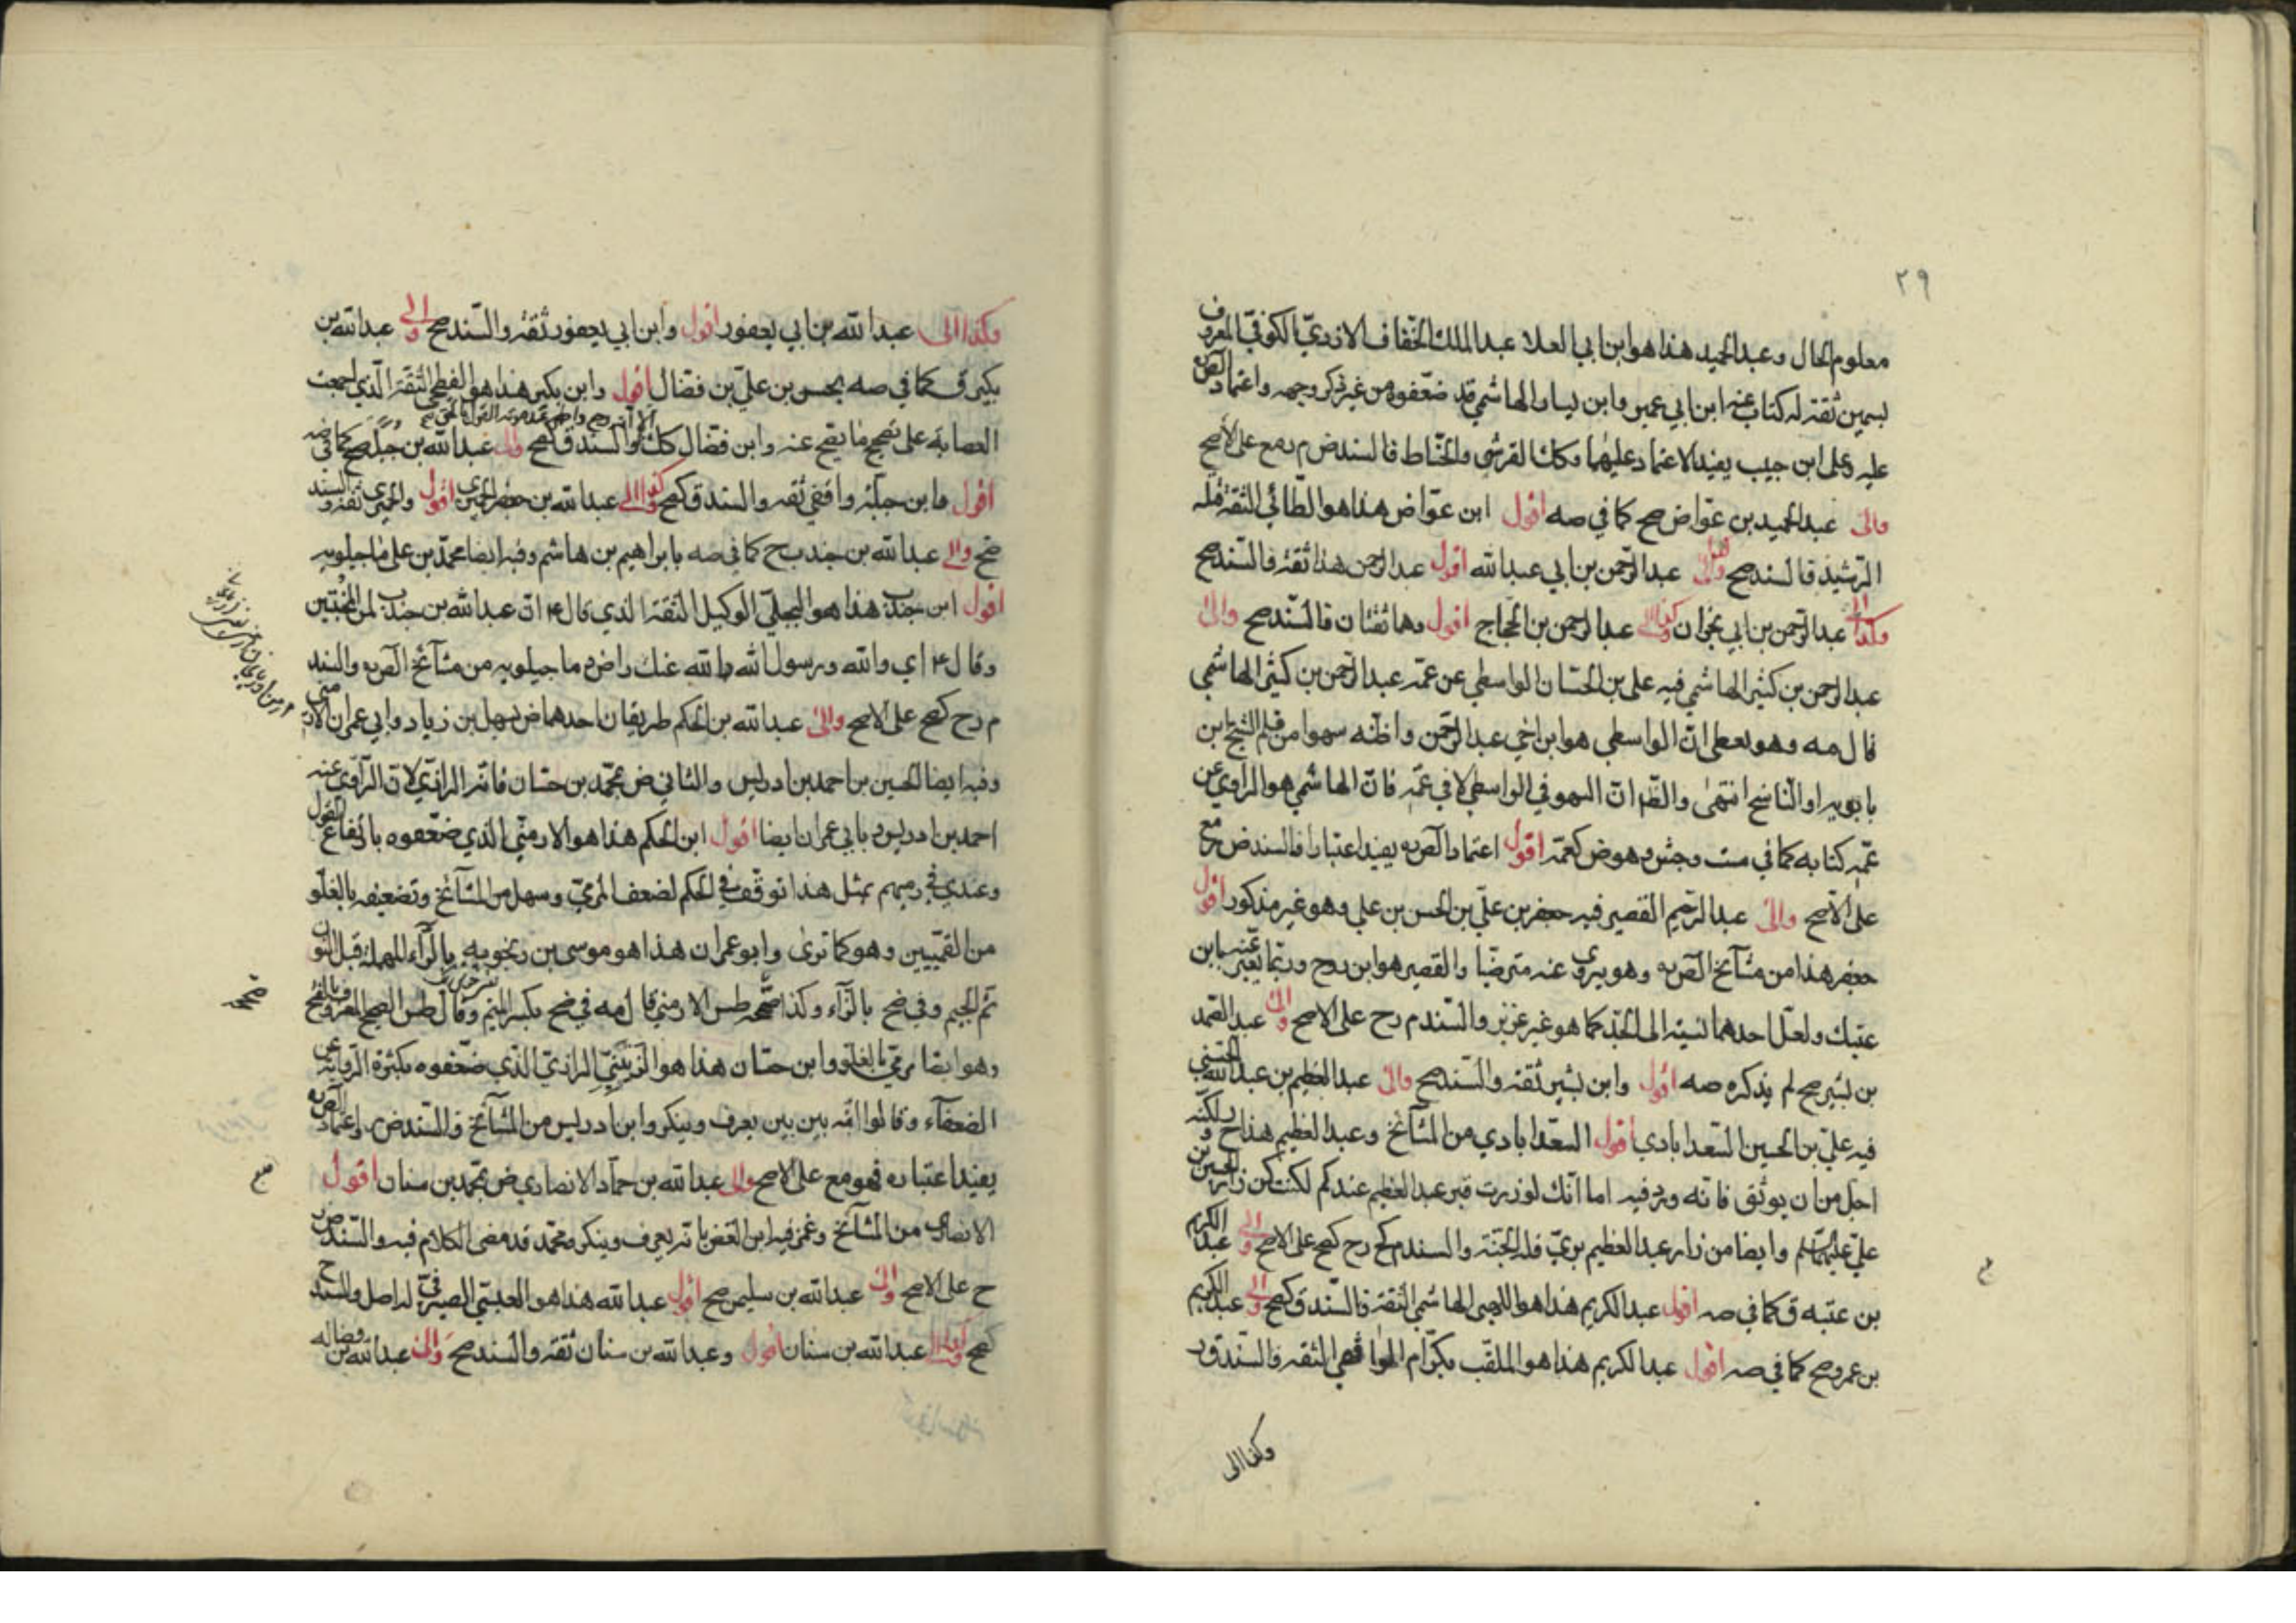 ٢٩
معلوم الحال وعبد الحميد هذا هو ابن ابي العلا عبد الملك الخفاف الازدي الكوفي المعروف
بسمين ثقة له كتاب عنه ابن ابي عمير وابن يسار الهاشمي قد ضعفوه من غير ذكر وجهه واعتماد الص ره
عليه وعلى ابن حبيب يفيد الاعتماد عليهما وكك القرشي والخياط فالسند ض م رمع على الأصح
والى عبد الحميد بن عواض صح كما في صه اقول ابن عواض هذا هو الطائي الثقة قتله
الرشيد فالسند صح والى عبد الرحمن بن ابي عبد الله اقول عبد الرحمن هذا ثقة فالسند صح
وكذا الى عبد الرحمن بن ابي نجران وكذا الى عبد الرحمن بن الحجاج اقول وهما ثقتان فالسند صح والى
عبد الرحمن بن كثير الهاشمي فيه علي بن الحسّان الواسطي عن عمه عبد الرحمن بن كثير الهاشمي
قال مه وهو يعطي ان الواسطي هو ابن اخي عبد الرحمن واظنه سهوا من قلم الشيخ ابن
بابويه او الناسخ انتهى والظ ان السهو في الواسطي لا في عمه فان الهاشمي هو الراوي عن
عمه كتابه كما في ست وجش وهو ض كعمه اقول اعتماد الص ره يفيد اعتبارا فالسند ض مع
على الاصح والى عبد الرحيم القصير فيه جعفر بن علي بن الحسن بن علي وهو غير مذكور اقول
جعفر هذا من مشايخ الص ره وهو يروي عنه مترضيا والقصير هو ابن روح وربما يعبر عنه بابن
عتيك ولعل احدهما نسبته الى الجد كما هو غير عزيز والسند م رح على الاصح والى عبد الصمد
بن بشير صح لم يذكره صه اقول وابن بشير ثقة والسند صح والى عبد العظيم بن عبد الله الحسني
فيه علي بن الحسين السعدابادي اقول السعدابادي من المشايخ وعبد العظيم هذا ح ولكنه
اجل من ان يوثق فانه ورد فيه اما انك لو زرت قبر عبد العظيم عندكم لكنت كمن زار الحسين بن
علي عليهما السلم وايضا من زار عبد العظيم بري فله الجنة والسند م كح رح كصح على الاصح والى عبد الكريم
بن عتبه ق كما في صه اقول عبد الكريم هذا هو اللهبي الهاشمي الثقة فالسند ق كصح والى عبد الكريم
بن عمرو صح كما في صه اقول عبد الكريم هذا هو الملقب بكرّام الواقفي الثقه فالسند ق ر
وكذا الى
وكذا الى عبد الله بن ابي يعفور اقول وابن ابي يعفور ثقة والسند صح والى عبد الله بن
بكير ق كما في صه بحسن بن علي بن فضال اقول وابن بكير هذا هو الفطحي الثقة الذي اجمعت
العصابة على تصحيح ما يصح عنه وابن فضال كك والسند ق كصح والى عبد الله بن جبلة صح كما في صه
اقول وابن جبلة واقفي ثقه والسند ق كصح وكذا الى عبد الله بن جعفر الحميري اقول والحميري ثقة والسند
صح والى عبد الله بن جندب ح كما في صه بابراهيم بن هاشم وفيه ايضا محمد بن علي ماجيلويه
اقول ابن جندب هذا هو البجلي الوكيل الثقة الذي قال ع ان عبد الله بن جندب لمن المخبتين
وقال ع اي والله ورسول الله والله عنك راض وماجيلويه من مشايخ الص ره والسند
م رح كصح على الاصح والى عبد الله بن الحكم طريقان احدهما ض بسهل بن زياد وابي عمران الارمني
وفيه ايضا الحسين بن احمد بن ادريس والثاني ض بمحمد بن حسّان فانه الرازي لان الراوي عنه
احمد بن ادريس وبابي عمران ايضا اقول ابن الحكم هذا هو الارمني الذي ضعفوه بارتفاع القول
وعندي في رميهم بمثل هذا توقف في الحكم لضعف المرمي وسهل من المشايخ وتضعيفه بالغلو
من القميين وهو كما ترى وابو عمران هذا هو موسى بن رنجويه بالراء المهملة قبل النون
ثم الجيم وفي ضح بالزاء وكذا صححه طس الارمني قال مه في ضح بكسر الميم وقال طس الصحيح المعروف بالفتح
وهو ايضا مرمي بالغلو وابن حسّان هذا هو الزينبي الرازي الذي ضعفوه بكثرة الرواية عن
الضعفاء وقالوا انه بين بين يعرف وينكر وابن ادريس من المشايخ فالسند ض واعتماد الص ره
يفيد اعتباره فهو مع على الاصح والى عبد الله بن حماد الانصاري ض بمحمد بن سنان اقول
الانصاري من المشايخ وغمز فيه ابن الغض بانه يعرف وينكر ومحمد قد مضى الكلام فيه والسند ض
ح على الاصح والى عبد الله بن سليمن صح اقول عبد الله هذا هو العبسي الصيرفي له اصل والسند ح
كصح وكذا الى عبد الله بن سنان اقول وعبد الله بن سنان ثقة والسند صح والى عبد الله بن فضاله